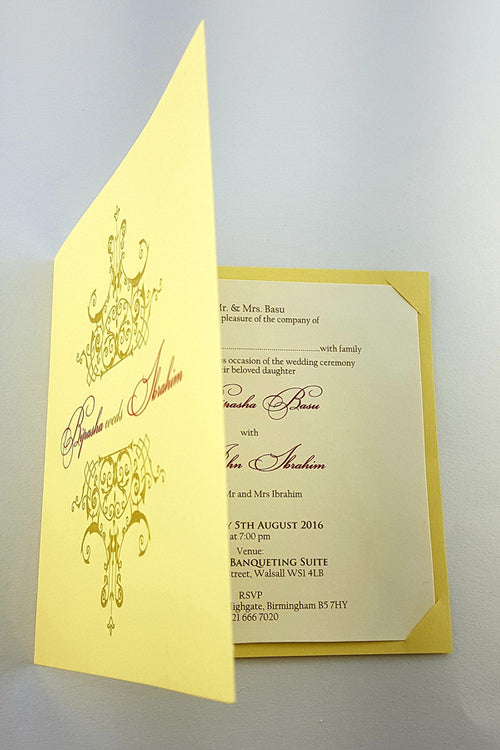 Bipasha weds Ibrahim
Mr. & Mrs. Basu
pleasure of the company of
with family
occasion of the wedding ceremony
beloved daughter
Basu
with
Ibrahim
Mr and Mrs Ibrahim
5TH AUGUST 2016
at 7:00 pm
Venue:
BANQUETING SUITE
Street, Walsall WS1 4LB
RSVP
Highgate, Birmingham B5 7HY
21 666 7020